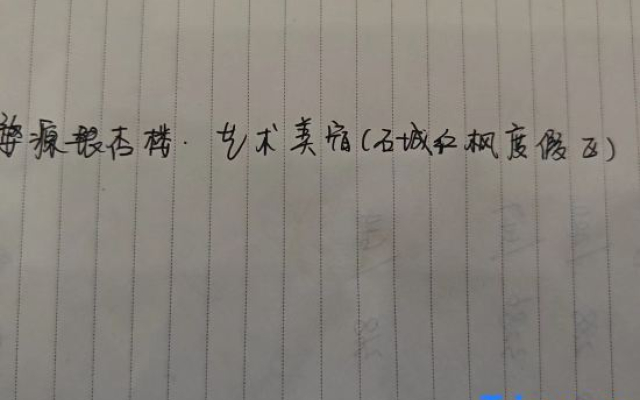 婺源银杏楼·艺术美宿(石城红枫度假区)